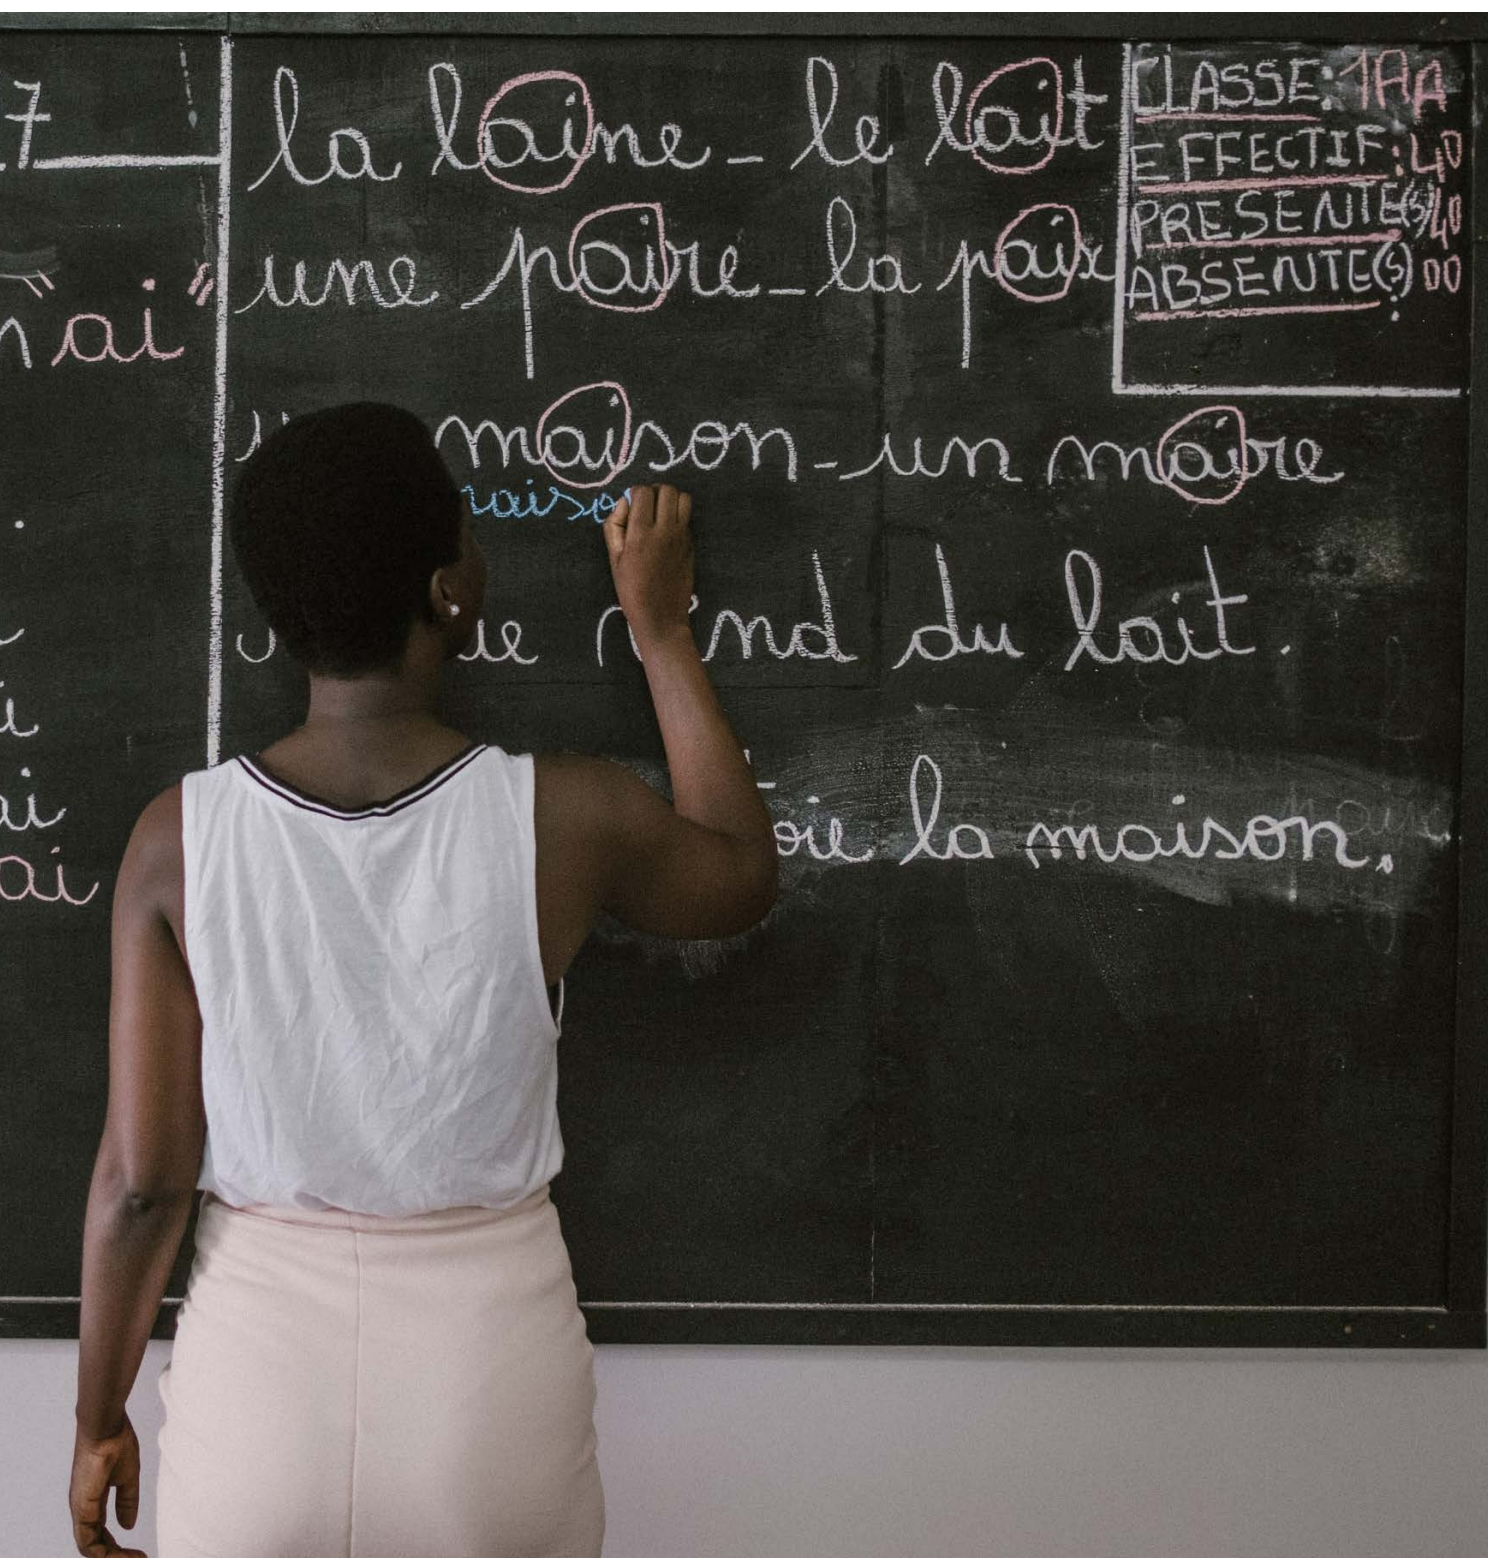 7
"ai"
ai
ai
ai
la laine - le lait
une paire - la paix
maison - un maire
raiso
du lait.
la maison.
CLASSE: 1AA
EFFECTIF: 40
PRESENTE(S) 40
ABSENTE(S): 00